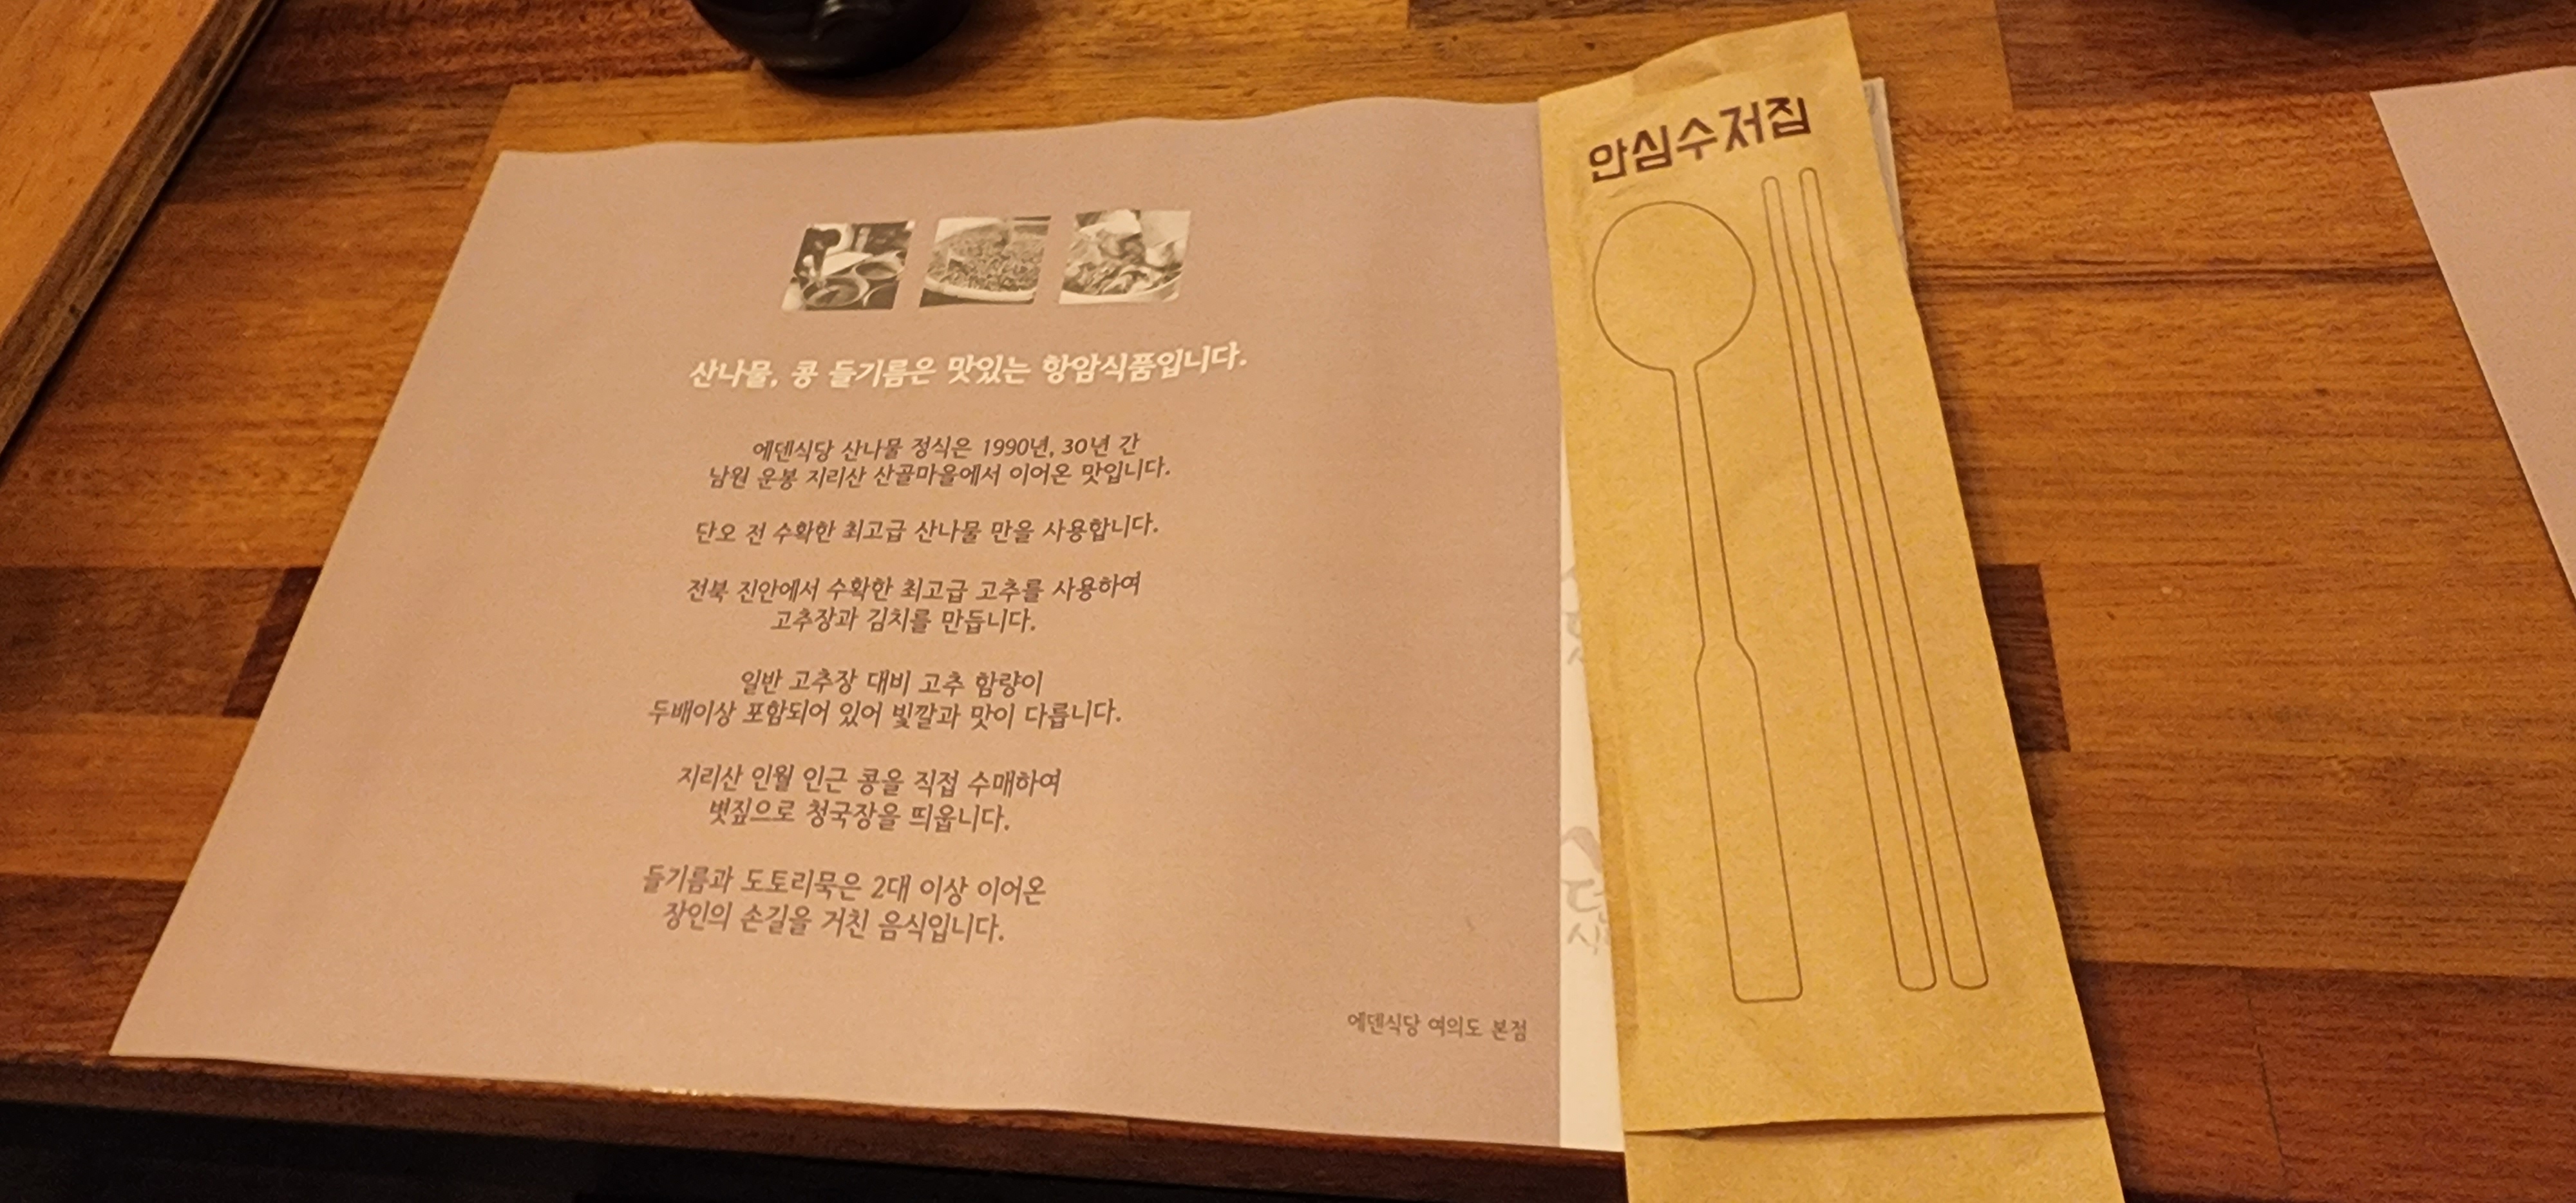 산나물, 콩 들기름은 맛있는 항암식품입니다.
에덴식당 산나물 정식은 1990년, 30년 간
남원 운봉 지리산 산골마을에서 이어온 맛입니다.
단오 전 수확한 최고급 산나물 만을 사용합니다.
전북 진안에서 수확한 최고급 고추를 사용하여
고추장과 김치를 만듭니다.
일반 고추장 대비 고추 함량이
두배이상 포함되어 있어 빛깔과 맛이 다릅니다.
지리산 인월 인근 콩을 직접 수매하여
볏짚으로 청국장을 띄웁니다.
들기름과 도토리묵은 2대 이상 이어온
장인의 손길을 거친 음식입니다.
에덴식당 여의도 본점
안심수저집